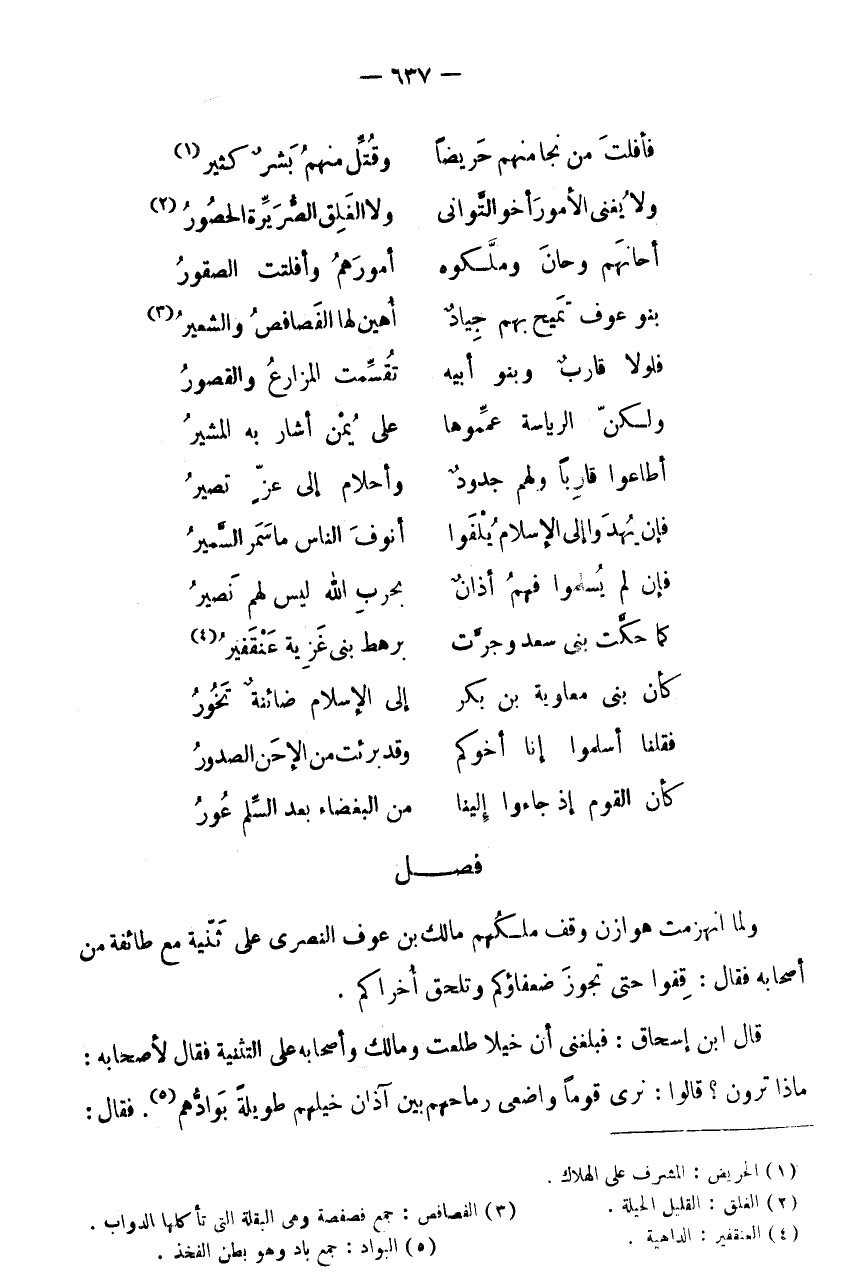 — ٦٣٧ —
فأفلتَ من نجا منهم حَريضاً وقُتِّل منهمُ بَشرٌ كثير (١)
ولا يُغنى الأمورَ أخو التَّوانى ولا الغَلِق الصُّرَيِّرة الحصُورُ (٢)
أحانَهم وحانَ وملَّكوه أمورَهمُ وأفلتت الصقورُ
بنو عوف تَميح بهم جِيادٌ أُهين لها الفَصافصُ والشعيرُ (٣)
فلولا قاربٌ وبنو أبيه تُقسِّمت المزارعُ والقصورُ
ولكنّ الرياسة عمِّموها على يُمْن أشار به المشيرُ
أطاعوا قارِباً ولهم جدودٌ وأحلام إلى عزٍّ تصيرُ
فإن يُهدَوا إلى الإسلام يُلْفَوا أنوفَ الناس ما سَمَر السَّميرُ
فإن لم يُسلموا فهمُ أذانٌ بحربِ الله ليس لهم نَصيرُ
كما حكَّت بنى سعد وجرَّت برهط بنى غَزِية عَنْقَفيرُ (٤)
كأن بنى معاوية بن بكر إلى الإسلام ضائنةٌ تَخُورُ
فقلنا أسلموا إنا أخوكم وقد برئت من الإحَن الصدورُ
كأن القوم إذ جاءوا إلينا من البغضاء بعد السِّلم عُورُ
فصـــل
ولما انهزمت هوازن وقف ملكُهم مالك بن عوف النصرى على ثَنّية مع طائفة من
أصحابه فقال : قِفوا حتى تجوزَ ضعفاؤكم وتلحق أُخراكم .
قال ابن إسحاق : فبلغنى أن خيلا طلعت ومالك وأصحابه على الثنية فقال لأصحابه :
ماذا ترون ؟ قالوا : نرى قوماً واضعى رماحهم بين آذان خيلهم طويلةً بَوادُّهم (٥). فقال :
(١) الحريض : المشرف على الهلاك .
(٢) الغلق : القليل الحيلة . (٣) الفصافص : جمع فصفصة وهى البقلة التى تأكلها الدواب .
(٤) العنقفير : الداهية . (٥) البواد : جمع باد وهو بطن الفخذ .